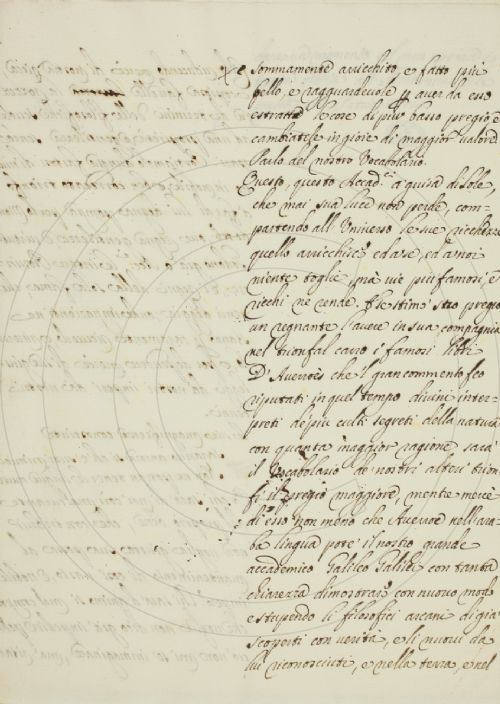 e sommamente arricchito, e fatto più
bello, e ragguardevole p auer da esso
estratte le cose di più basso pregio e
cambiatele in gioie di maggior valore
Parlo del nostro Vocabolario.
Questo, questo Accad.ci a guisa di Sole
che mai sua luce non perde, com-
partendo all Universo le sue ricchezze
quello arricchisce ed a se, ed a noi
niente toglie, ma vie più famosi, e
ricchi ne rende. Se stimò suo pregio
un regnante l'avere in sua compagnia
nel trionfal carro i famosi libri
D'Averroès che il gran commento feo
riputati in quel tempo divini inter-
preti de più culti segreti della natura
con quanta maggior ragione sarà
il Vocabolario de nostri altrui trion-
fi il pregio maggiore, mentre mercè
di esso non meno che Averroe nell ara-
ba lingua potè il nostro grande
accademico Galileo Galilei con tanta
chiarezza dimostrare con nuovo modo
e stupendo li filosofici arcani di già
scoperti con verità, e li nuovi da
lui riconosciuti, e nella terra, e nel